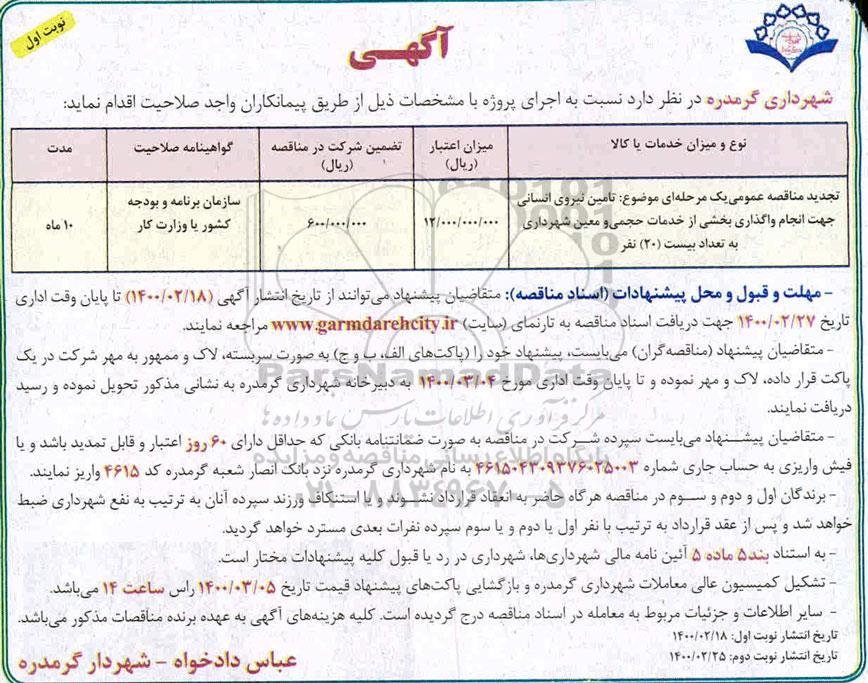 نوبت اول
آگهی
شهرداری گرمدره در نظر دارد نسبت به اجرای پروژه با مشخصات ذیل از طریق پیمانکاران واجد صلاحیت اقدام نماید:
نوع و میزان خدمات یا کالا
میزان اعتبار (ریال)
تضمین شرکت در مناقصه (ریال)
گواهینامه صلاحیت
مدت
تجدید مناقصه عمومی‌یک مرحله‌ای موضوع: تامین نیروی انسانی
جهت انجام واگذاری بخشی از خدمات حجمی‌و معین شهرداری
به تعداد بیست (۲۰) نفر
۱۲/۰۰۰/۰۰۰/۰۰۰
۶۰۰/۰۰۰/۰۰۰
سازمان برنامه و بودجه
کشور یا وزارت کار
۱۰ ماه
- مهلت و قبول و محل پیشنهادات (اسناد مناقصه): متقاضیان پیشنهاد می‌توانند از تاریخ انتشار آگهی (۱۴۰۰/۰۲/۱۸) تا پایان وقت اداری
تاریخ ۱۴۰۰/۰۲/۲۷ جهت دریافت اسناد مناقصه به تارنمای (سایت) www.garmdarehcity.ir مراجعه نمایند.
- متقاضیان پیشنهاد (مناقصه‌گران) می‌بایست، پیشنهاد خود را (پاکت‌های الف، ب و ج) به صورت سربسته، لاک و ممهور به مهر شرکت در یک
پاکت قرار داده، لاک و مهر نموده و تا پایان وقت اداری مورخ ۱۴۰۰/۰۳/۰۴ به دبیرخانه شهرداری گرمدره به نشانی مذکور تحویل نموده و رسید
دریافت نمایند.
- متقاضیان پیشنهاد می‌بایست سپرده شرکت در مناقصه به صورت ضمانتنامه بانکی که حداقل دارای ۶۰ روز اعتبار و قابل تمدید باشد و یا
فیش واریزی به حساب جاری شماره ۴۶۱۵۰۴۳۰۹۳۷۶۰۲۵۰۰۳ به نام شهرداری گرمدره نزد بانک انصار شعبه گرمدره کد ۴۶۱۵ واریز نمایند.
- برندگان اول و دوم و سوم در مناقصه هرگاه حاضر به انعقاد قرارداد نشوند و یا استنکاف ورزند سپرده آنان به ترتیب به نفع شهرداری ضبط
خواهد شد و پس از عقد قرارداد به ترتیب با نفر اول یا دوم و یا سوم سپرده نفرات بعدی مسترد خواهد گردید.
- به استناد بند۵ ماده ۵ آئین نامه مالی شهرداری‌ها، شهرداری در رد یا قبول کلیه پیشنهادات مختار است.
- تشکیل کمیسیون عالی معاملات شهرداری گرمدره و بازگشایی پاکت‌های پیشنهاد قیمت تاریخ ۱۴۰۰/۰۳/۰۵ راس ساعت ۱۴ می‌باشد.
- سایر اطلاعات و جزئیات مربوط به معامله در اسناد مناقصه درج گردیده است. کلیه هزینه‌های آگهی به عهده برنده مناقصات مذکور می‌باشد.
تاریخ انتشار نوبت اول: ۱۴۰۰/۰۲/۱۸
تاریخ انتشار نوبت دوم: ۱۴۰۰/۰۲/۲۵
عباس دادخواه - شهردار گرمدره
ParsNamadData
مرکز فرآوری اطلاعات پارس نماد داده ها
پایگاه اطلاع رسانی مناقصه و مزایده
۰۲۱-۸۸۳۴۹۶۷۰-۵